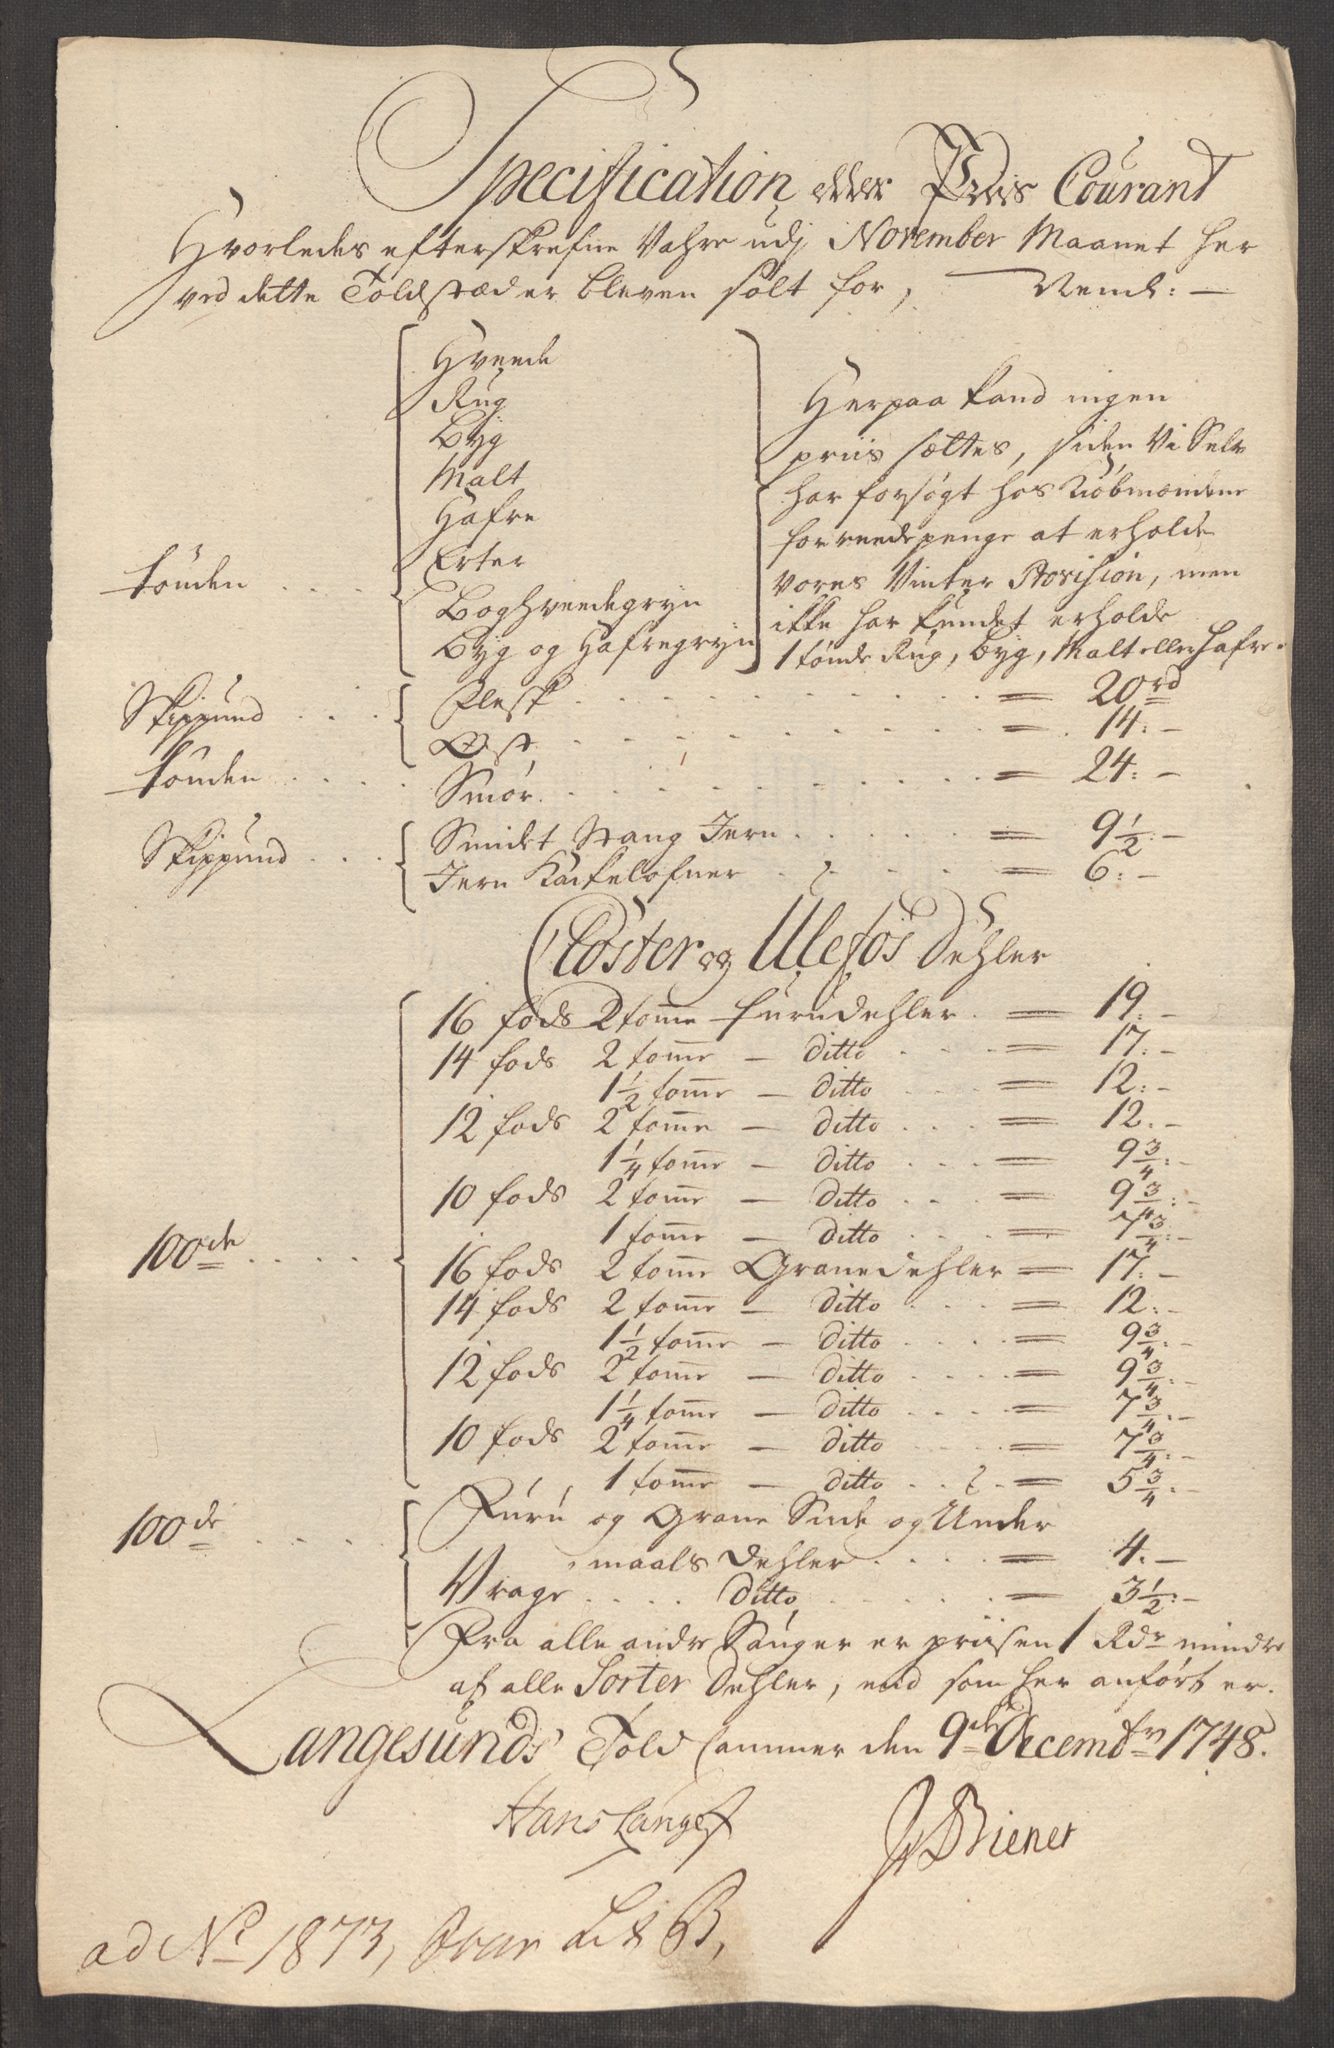 Specification eller Priis Courant
Hvorledes efterskrefne Vahre udj November Maanet her
ved dette Toldstæd er bleven solt for, Neml: —
Hveede
Rug
Byg
Malt
Hafre
Erter
Boghveedegryn
Byg og Hafregryn
tönden . . . .
Herpaa kand ingen
priis sættes, siden Vi Selv
har forsögt hos Kiöbmændene
for reede penge at erholde
vores Vinter Provision, men
ikke har kundet erholde
1 tönde Rug, Byg, Malt eller Hafre.
Skippund . . . Flesk . . . = 20 rd
Ost . . . = 14: —
tönden . . . Smör . . . = 24: —
Skippund . . . Smidet Stang Jern . . . = 9 1/2: —
Jern Kackelofner . . . = 6: —
Closter og Ulefos Dehler
16 fods 2 tomme furudehler . = 19: —
14 fods 2 tomme — ditto . . . = 17: —
1 1/2 tomme — ditto . . . = 12: —
12 fods 2 tomme — ditto . . . = 12: —
1 1/4 tomme — ditto . . . = 9 3/4: —
10 fods 2 tomme — ditto . . . = 9 3/4: —
1 tomme — ditto . . . = 7 3/4: —
100de . . . . 16 fods 2 tomme Granedehler = 17: —
14 fods 2 tomme — ditto . . . = 12: —
1 1/2 tomme — ditto . . . = 9 3/4: —
12 fods 2 tomme — ditto . . . = 9 3/4: —
1 1/4 tomme — ditto . . . = 7 3/4: —
10 fods 2 tomme — ditto . . . = 7 3/4: —
1 tomme — ditto . . . = 5 3/4: —
100de . . . . Furu og Grane Sude og Under
maals Dehler . . . = 4: —
Vrage . . . . ditto . . . = 3 1/2: —
Fra alle andre Sauger er priisen 1 Rdr mindre
af alle Sorter Dehler, end som her anfört er.
Langesunds Told Cammer den 9de Decembr 1748.
Hans Lange
Briener
ad No 1873, Lit B,